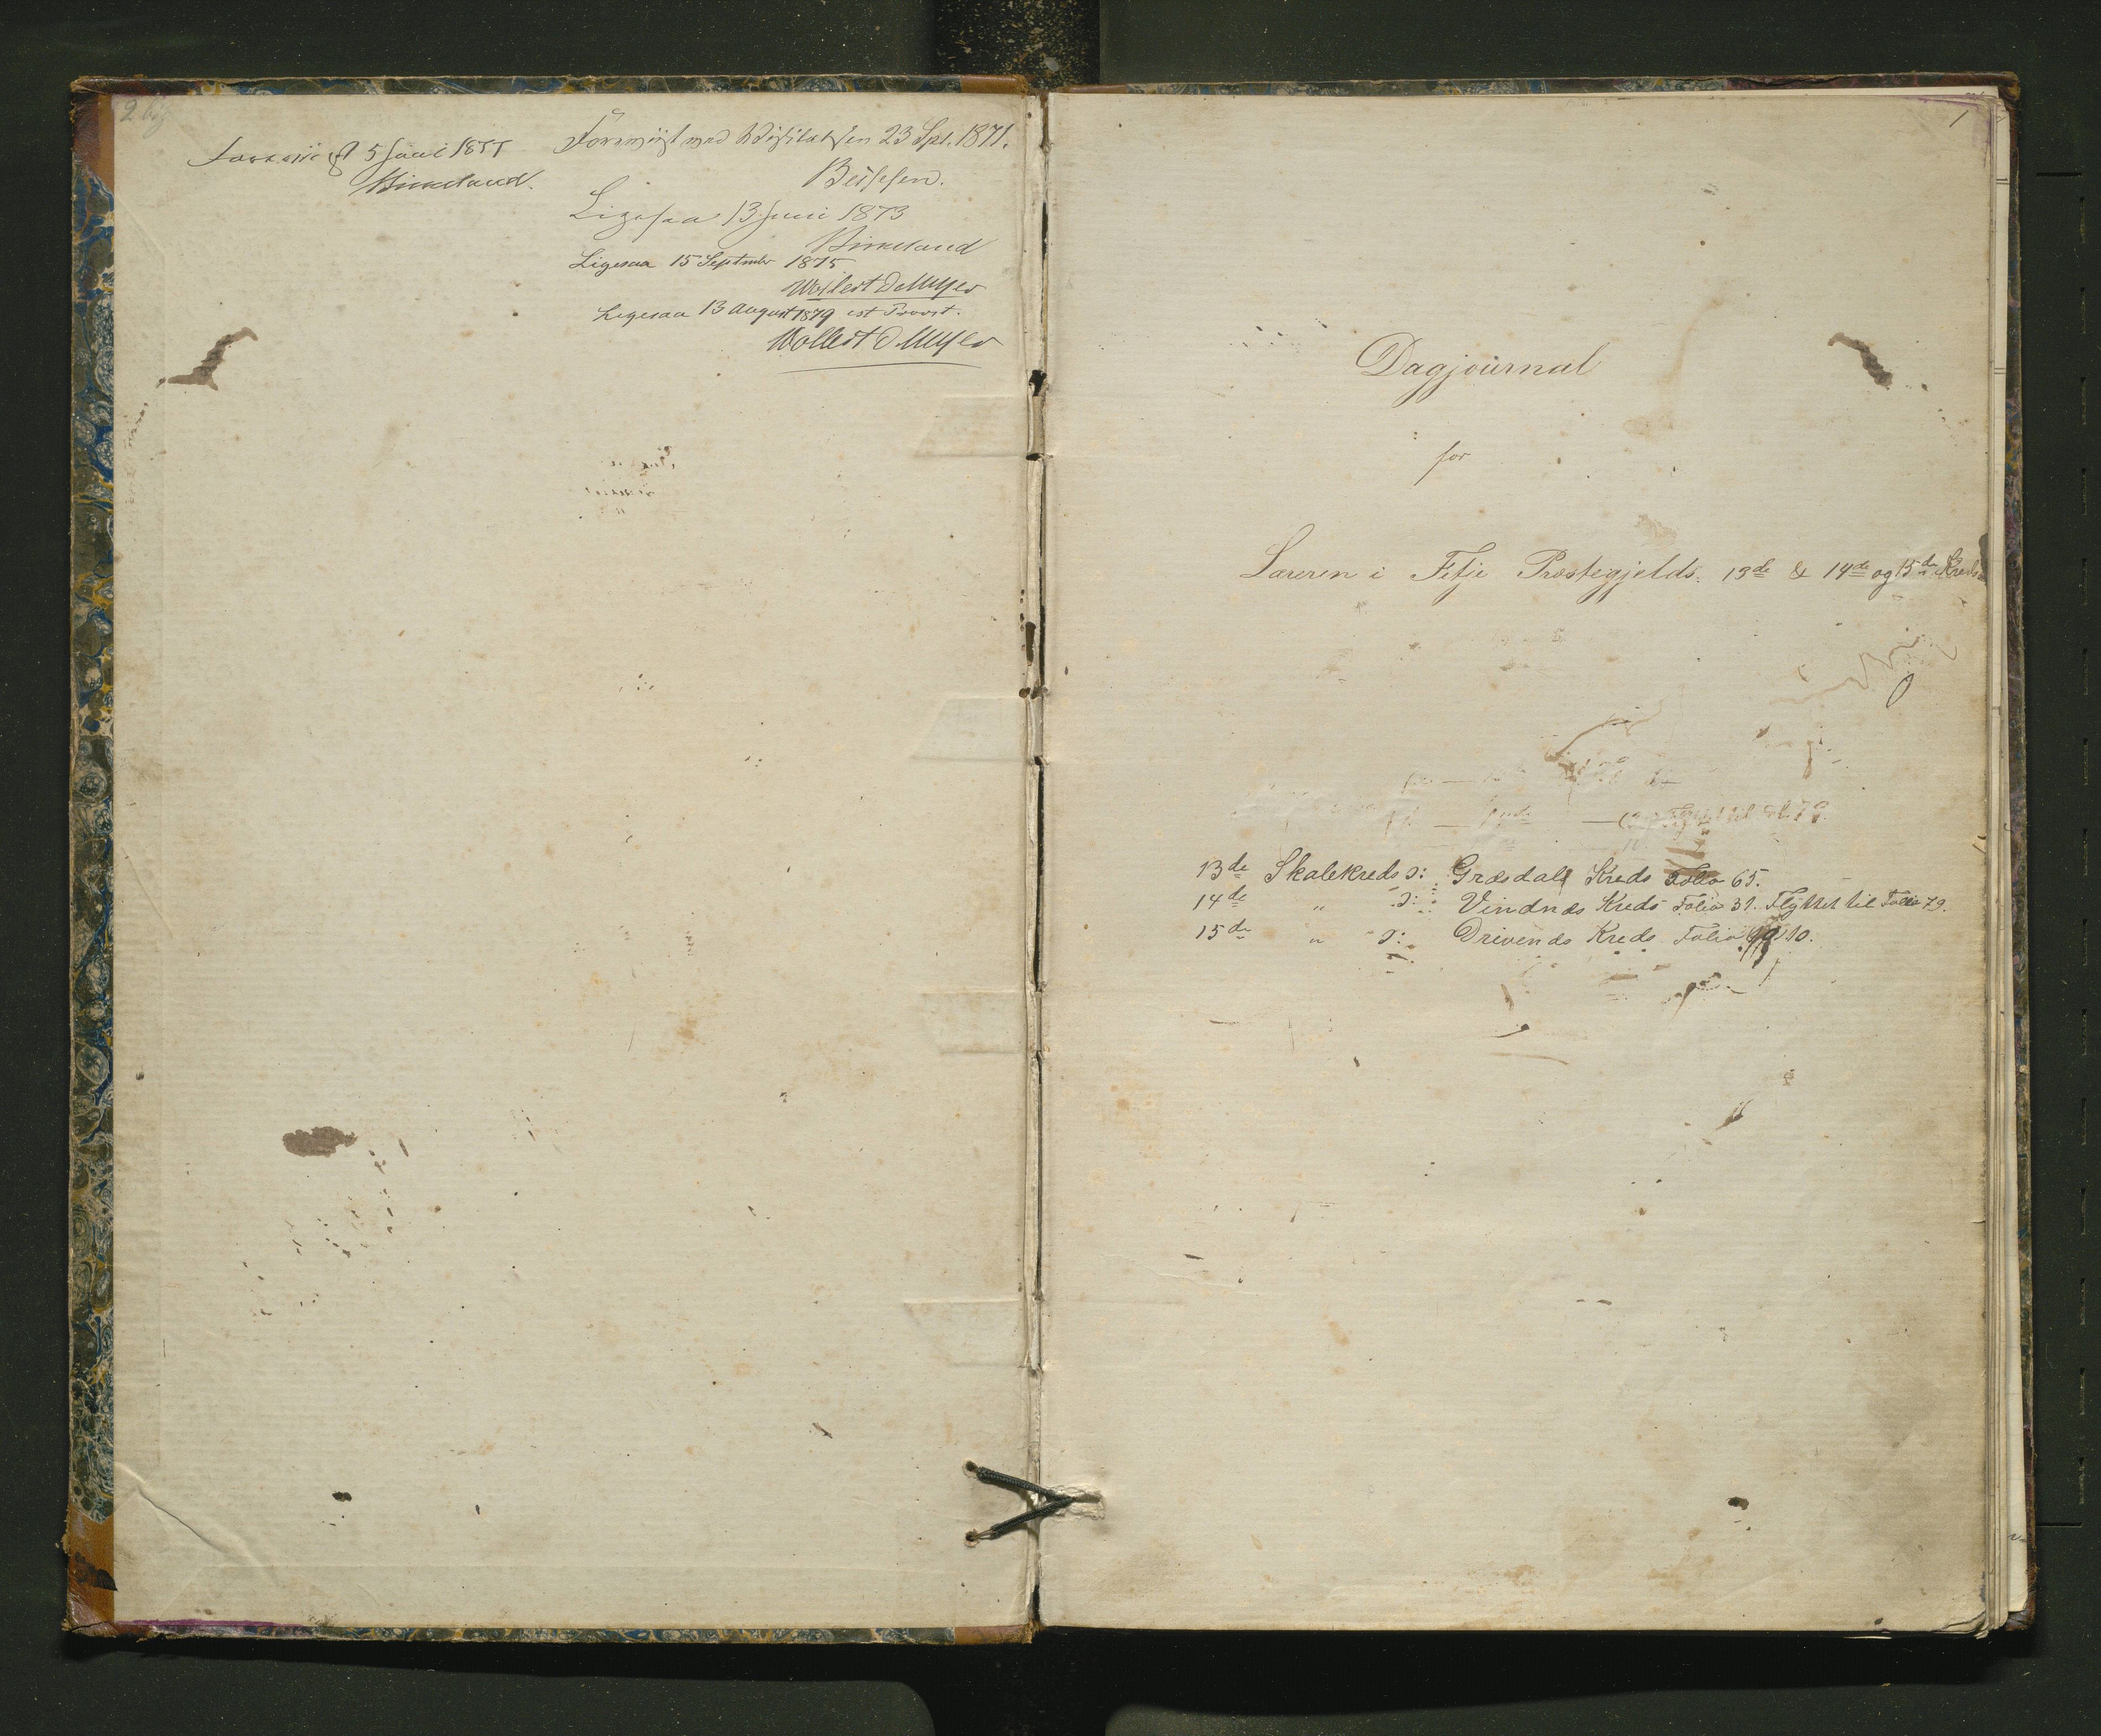 Foreviist 5 Juni 1877
Birkeland.
Foreviist ved Visitatsen 23 Spt. 1871.
Ligesaa 13 Juni 1873
Birkeland
Ligesaa 15 September 1875
Wollert D Meyer
Ligesaa 13 August 1879 cst Provst.
Wollert D Meyer
1
Dagjournal
for
Læreren i Fitje Præstegjelds. 13de & 14de og 15de Kreds
Flyttet til Fol. 79.
13de Skolekreds ɔ: Græsdals Kreds Folio 65.
14de " ɔ: Vindnæs Kreds Folio 31. Flyttet til Folio 79.
15de " ɔ: Drivenæs Kreds Folio 110.